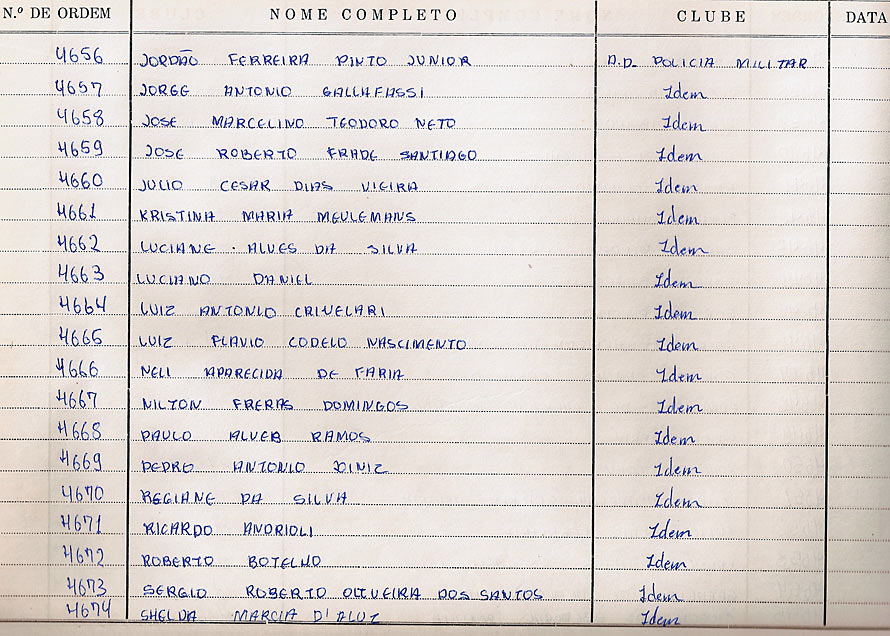 N.º DE ORDEM NOME COMPLETO CLUBE DATA
4656 JORDÃO FERREIRA PINTO JUNIOR D.D. POLICIA MILITAR
4657 JORGE ANTONIO GALLAFASSI Idem
4658 JOSE MARCELINO TEODORO NETO Idem
4659 JOSE ROBERTO FRADE SANTIAGO Idem
4660 JULIO CESAR DIAS VIEIRA Idem
4661 KRISTINA MARIA MEULEMANS Idem
4662 LUCIANE ALVES DA SILVA Idem
4663 LUCIANO DANIEL Idem
4664 LUIZ ANTONIO CRIVELARI Idem
4665 LUIZ FLAVIO CODELO NASCIMENTO Idem
4666 NELI APARECIDA DE FARIA Idem
4667 NILTON FRERAS DOMINGOS Idem
4668 PAULO ALVES RAMOS Idem
4669 PEDRO ANTONIO DINIZ Idem
4670 REGIANE DA SILVA Idem
4671 RICARDO ANDRIOLI Idem
4672 ROBERTO BOTELHO Idem
4673 SERGIO ROBERTO OLIVEIRA DOS SANTOS Idem
4674 SHELDA MARCIA D'ALUZ Idem